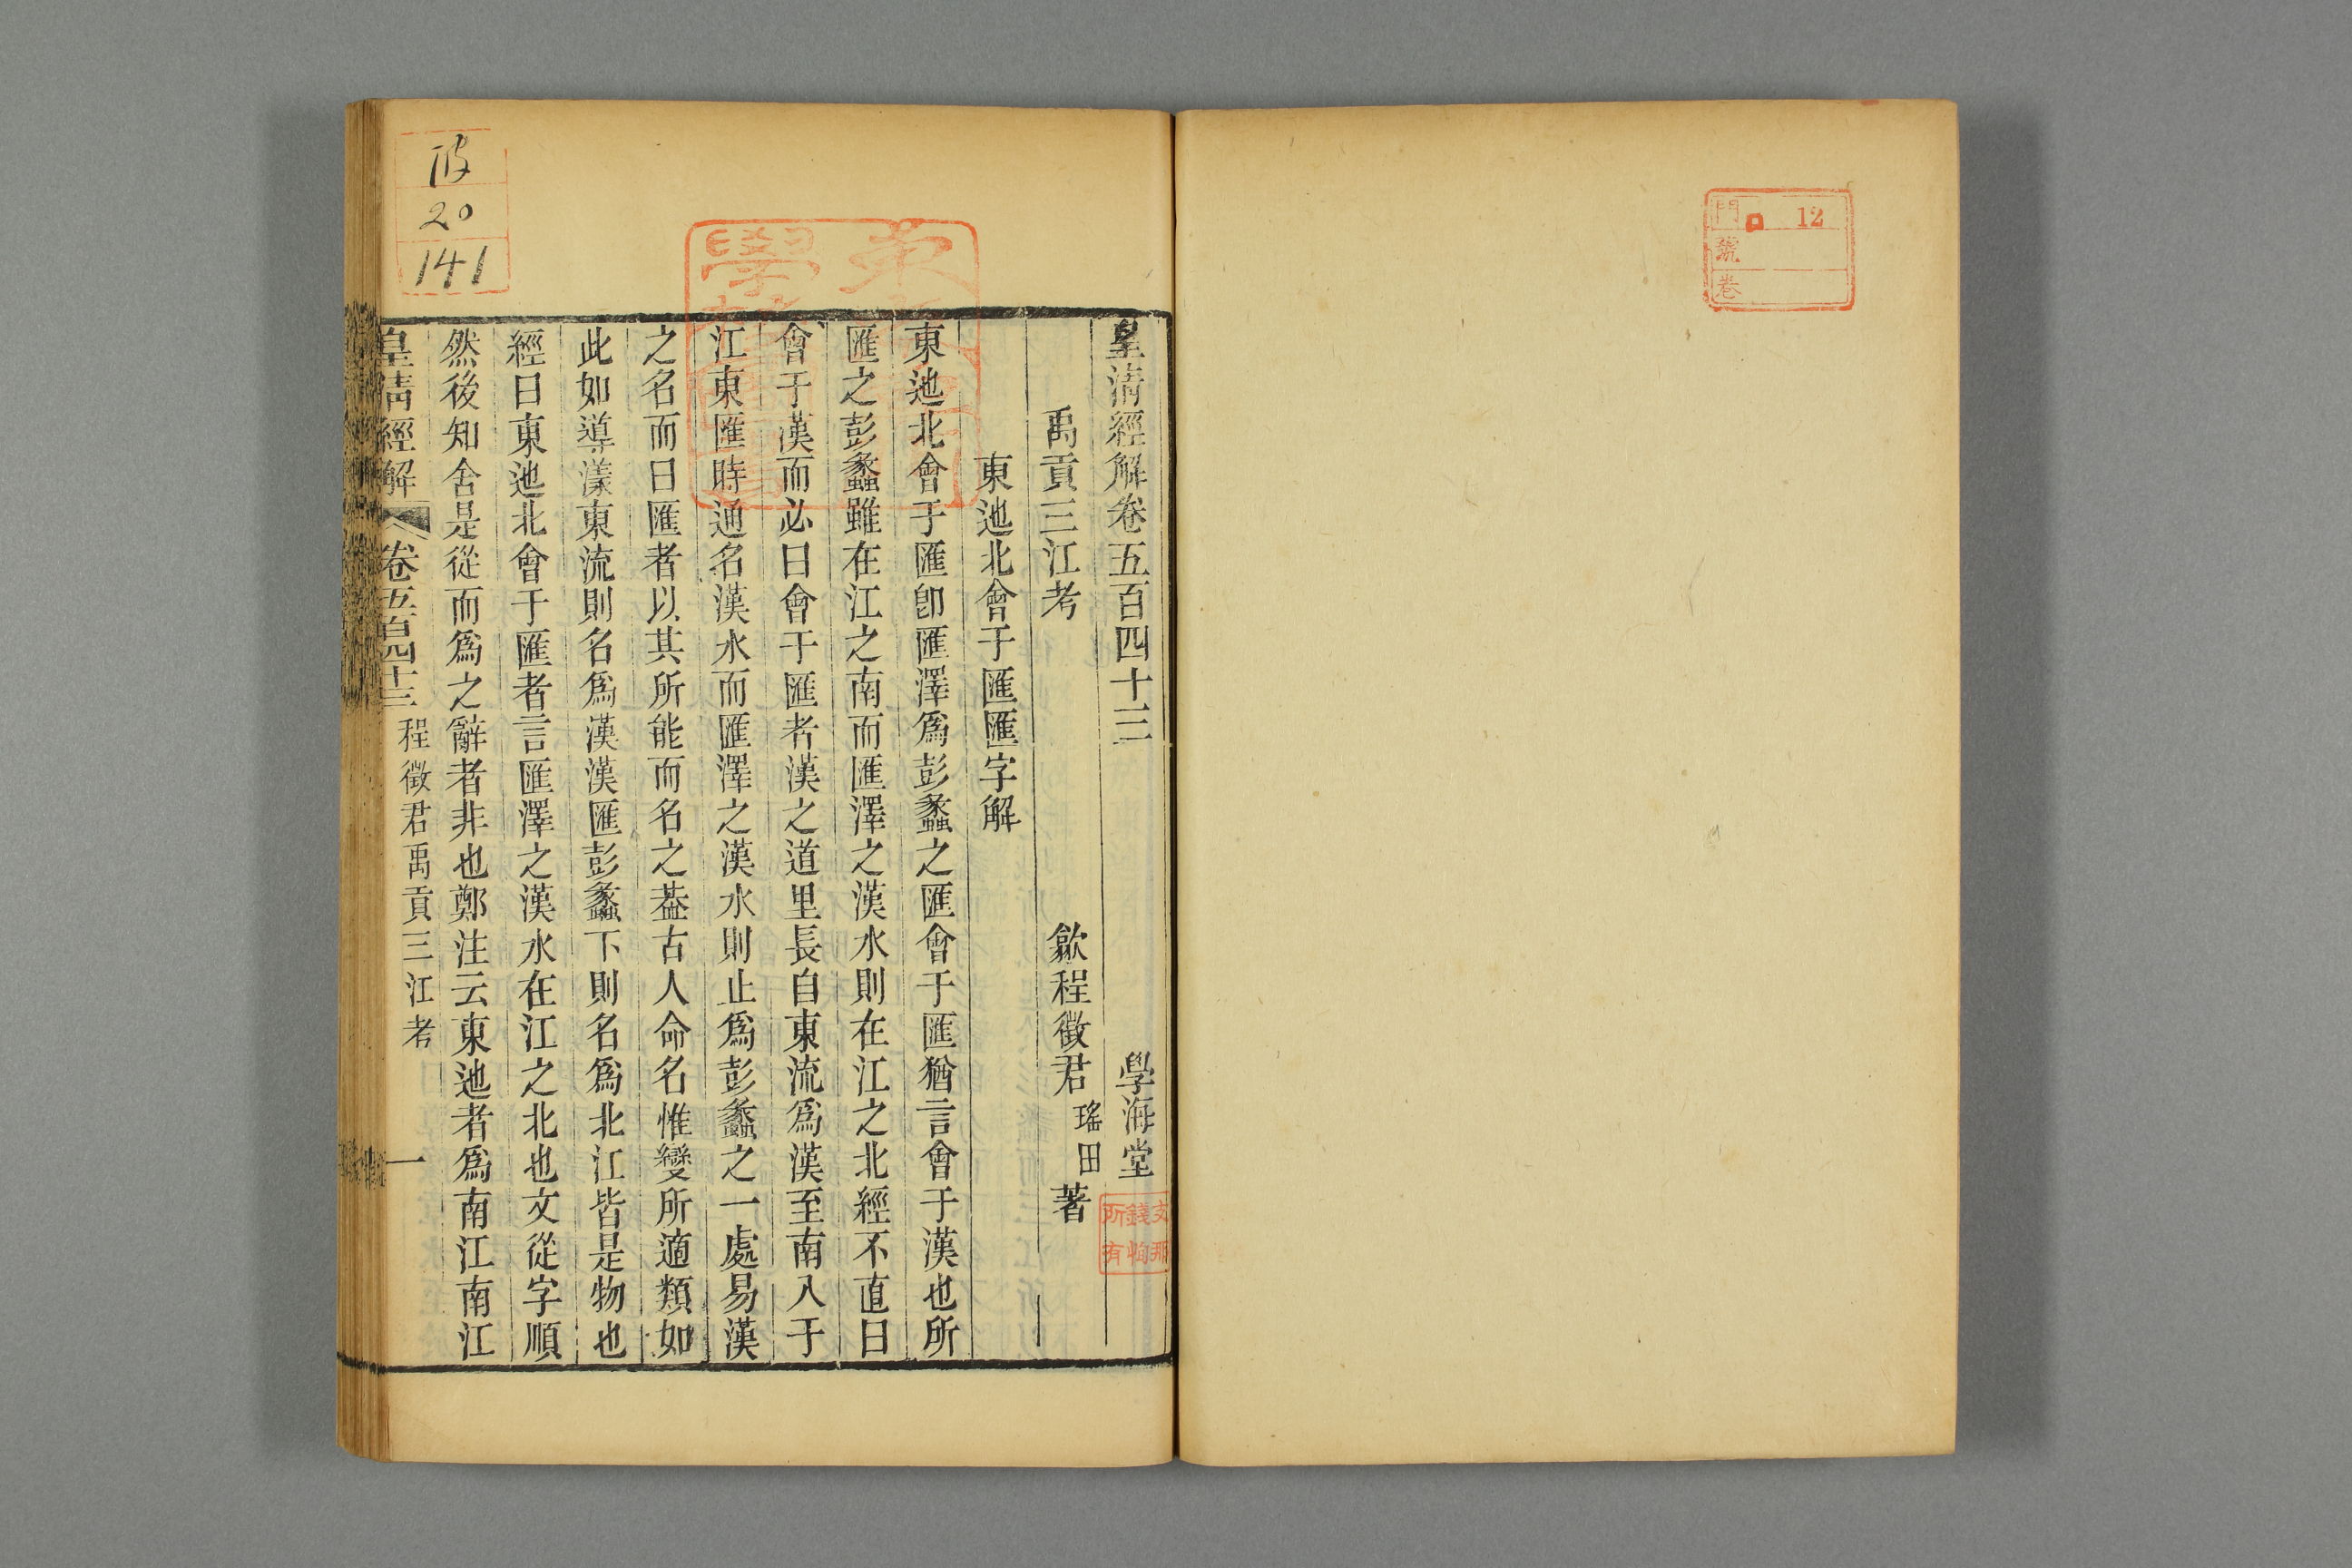 門 12
號
卷
皇清經解卷五百四十三 學海堂
禹貢三江考 歙程徵君瑤田著
東迆北會于匯匯字解
東迆北會于匯卽匯澤爲彭蠡之匯會于匯猶言會于漢也所
匯之彭蠡雖在江之南而匯澤之漢水則在江之北經不直曰
會于漢而必曰會于匯者漢之道里長自東流爲漢至南入于
江東匯時通名漢水而匯澤之漢水則止爲彭蠡之一處易漢
之名而曰匯者以其所能而名之葢古人命名惟變所適類如
此如導漾東流則名爲漢漢匯彭蠡下則名爲北江皆是物也
經曰東迆北會于匯者言匯澤之漢水在江之北也文從字順
然後知舍是從而爲之辭者非也鄭注云東迆者爲南江南江
皇清經解 卷五百四十三 程徵君禹貢三江考 一
20
141
支那
錢恂
所有